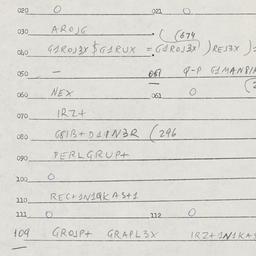 020 0 021 0
030 AROJG
(674
040 G1ROJ3X $ G1RUX = G1ROJ3X ) REJ3X )
050 — 051 G1MANPIA
060 NEX 061 0
070 IRZ+
080 (296
090 PERLGRUP+
100 0
110 REC+1N1QKAS+1
111 0 112 0
109 GROJP+ GRAPL3X IRZ+1N1KAS